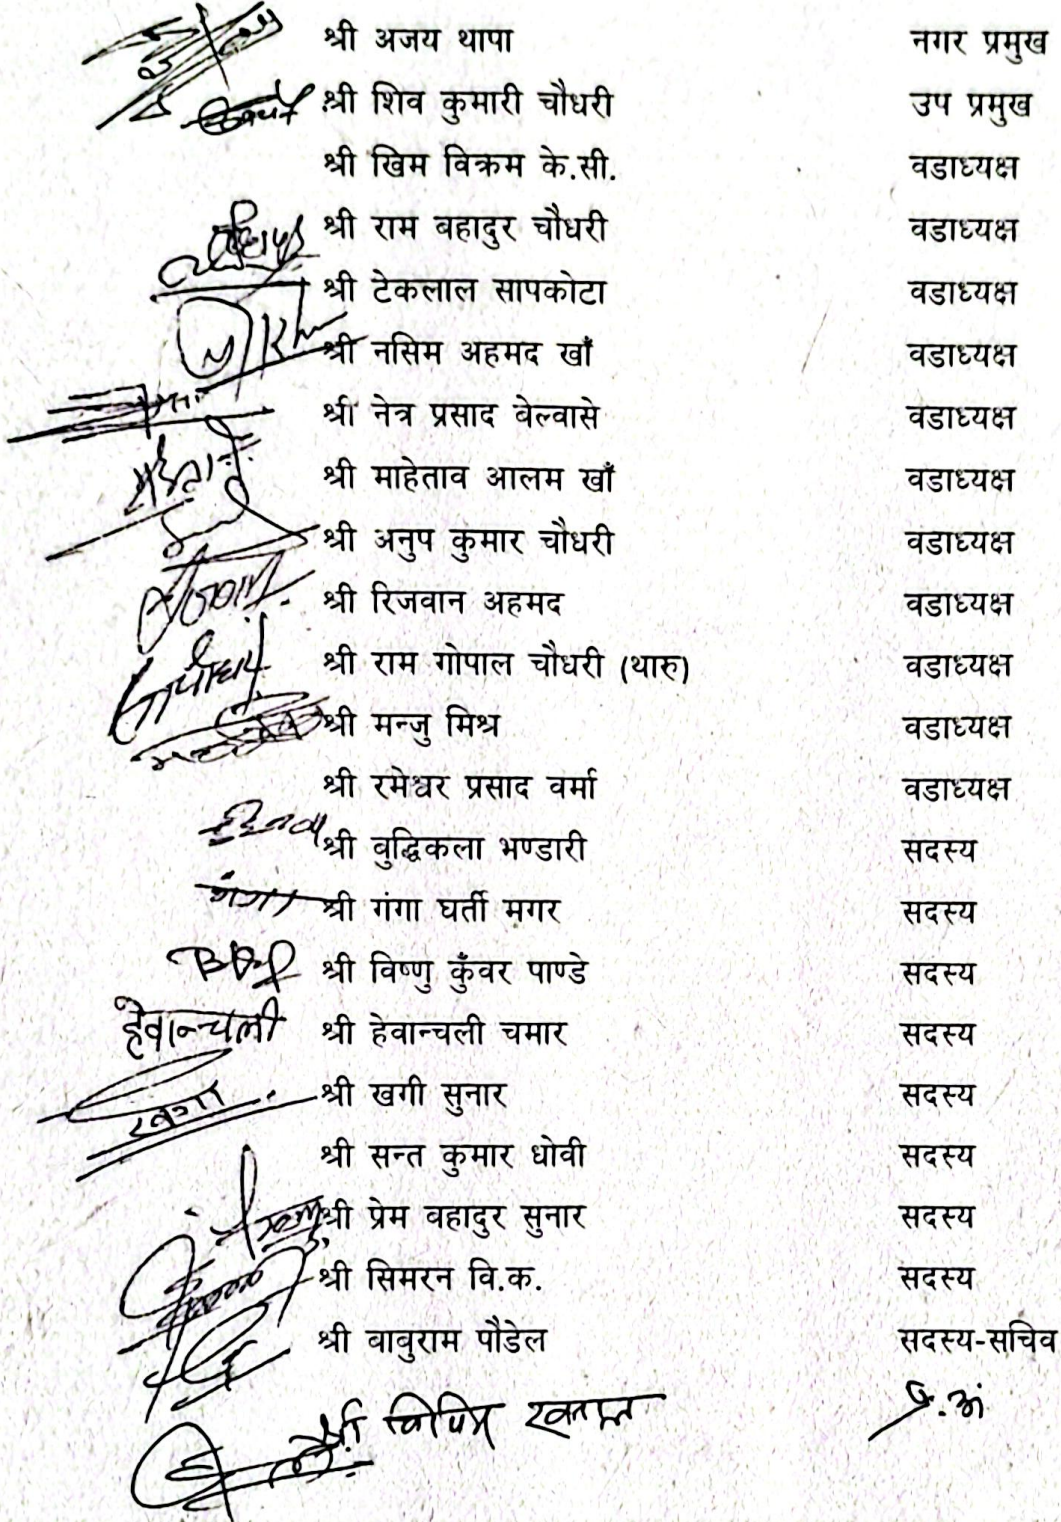 श्री अजय थापा नगर प्रमुख
श्री शिव कुमारी चौधरी उप प्रमुख
श्री खिम विक्रम के.सी. वडाध्यक्ष
श्री राम बहादुर चौधरी वडाध्यक्ष
श्री टेकलाल सापकोटा वडाध्यक्ष
श्री नसिम अहमद खाँ वडाध्यक्ष
श्री नेत्र प्रसाद वेल्वासे वडाध्यक्ष
श्री माहेताव आलम खाँ वडाध्यक्ष
श्री अनुप कुमार चौधरी वडाध्यक्ष
श्री रिजवान अहमद वडाध्यक्ष
श्री राम गोपाल चौधरी (थारु) वडाध्यक्ष
श्री मन्जु मिश्र वडाध्यक्ष
श्री रमेश्वर प्रसाद वर्मा वडाध्यक्ष
श्री बुद्धिकला भण्डारी सदस्य
गंगा श्री गंगा घर्ती मगर सदस्य
श्री विष्णु कुँवर पाण्डे सदस्य
हेवान्चली श्री हेवान्चली चमार सदस्य
श्री खगी सुनार सदस्य
श्री सन्त कुमार धोवी सदस्य
श्री प्रेम वहादुर सुनार सदस्य
श्री सिमरन वि.क. सदस्य
श्री वाबुराम पौडेल सदस्य-सचिव
श्री विपिन